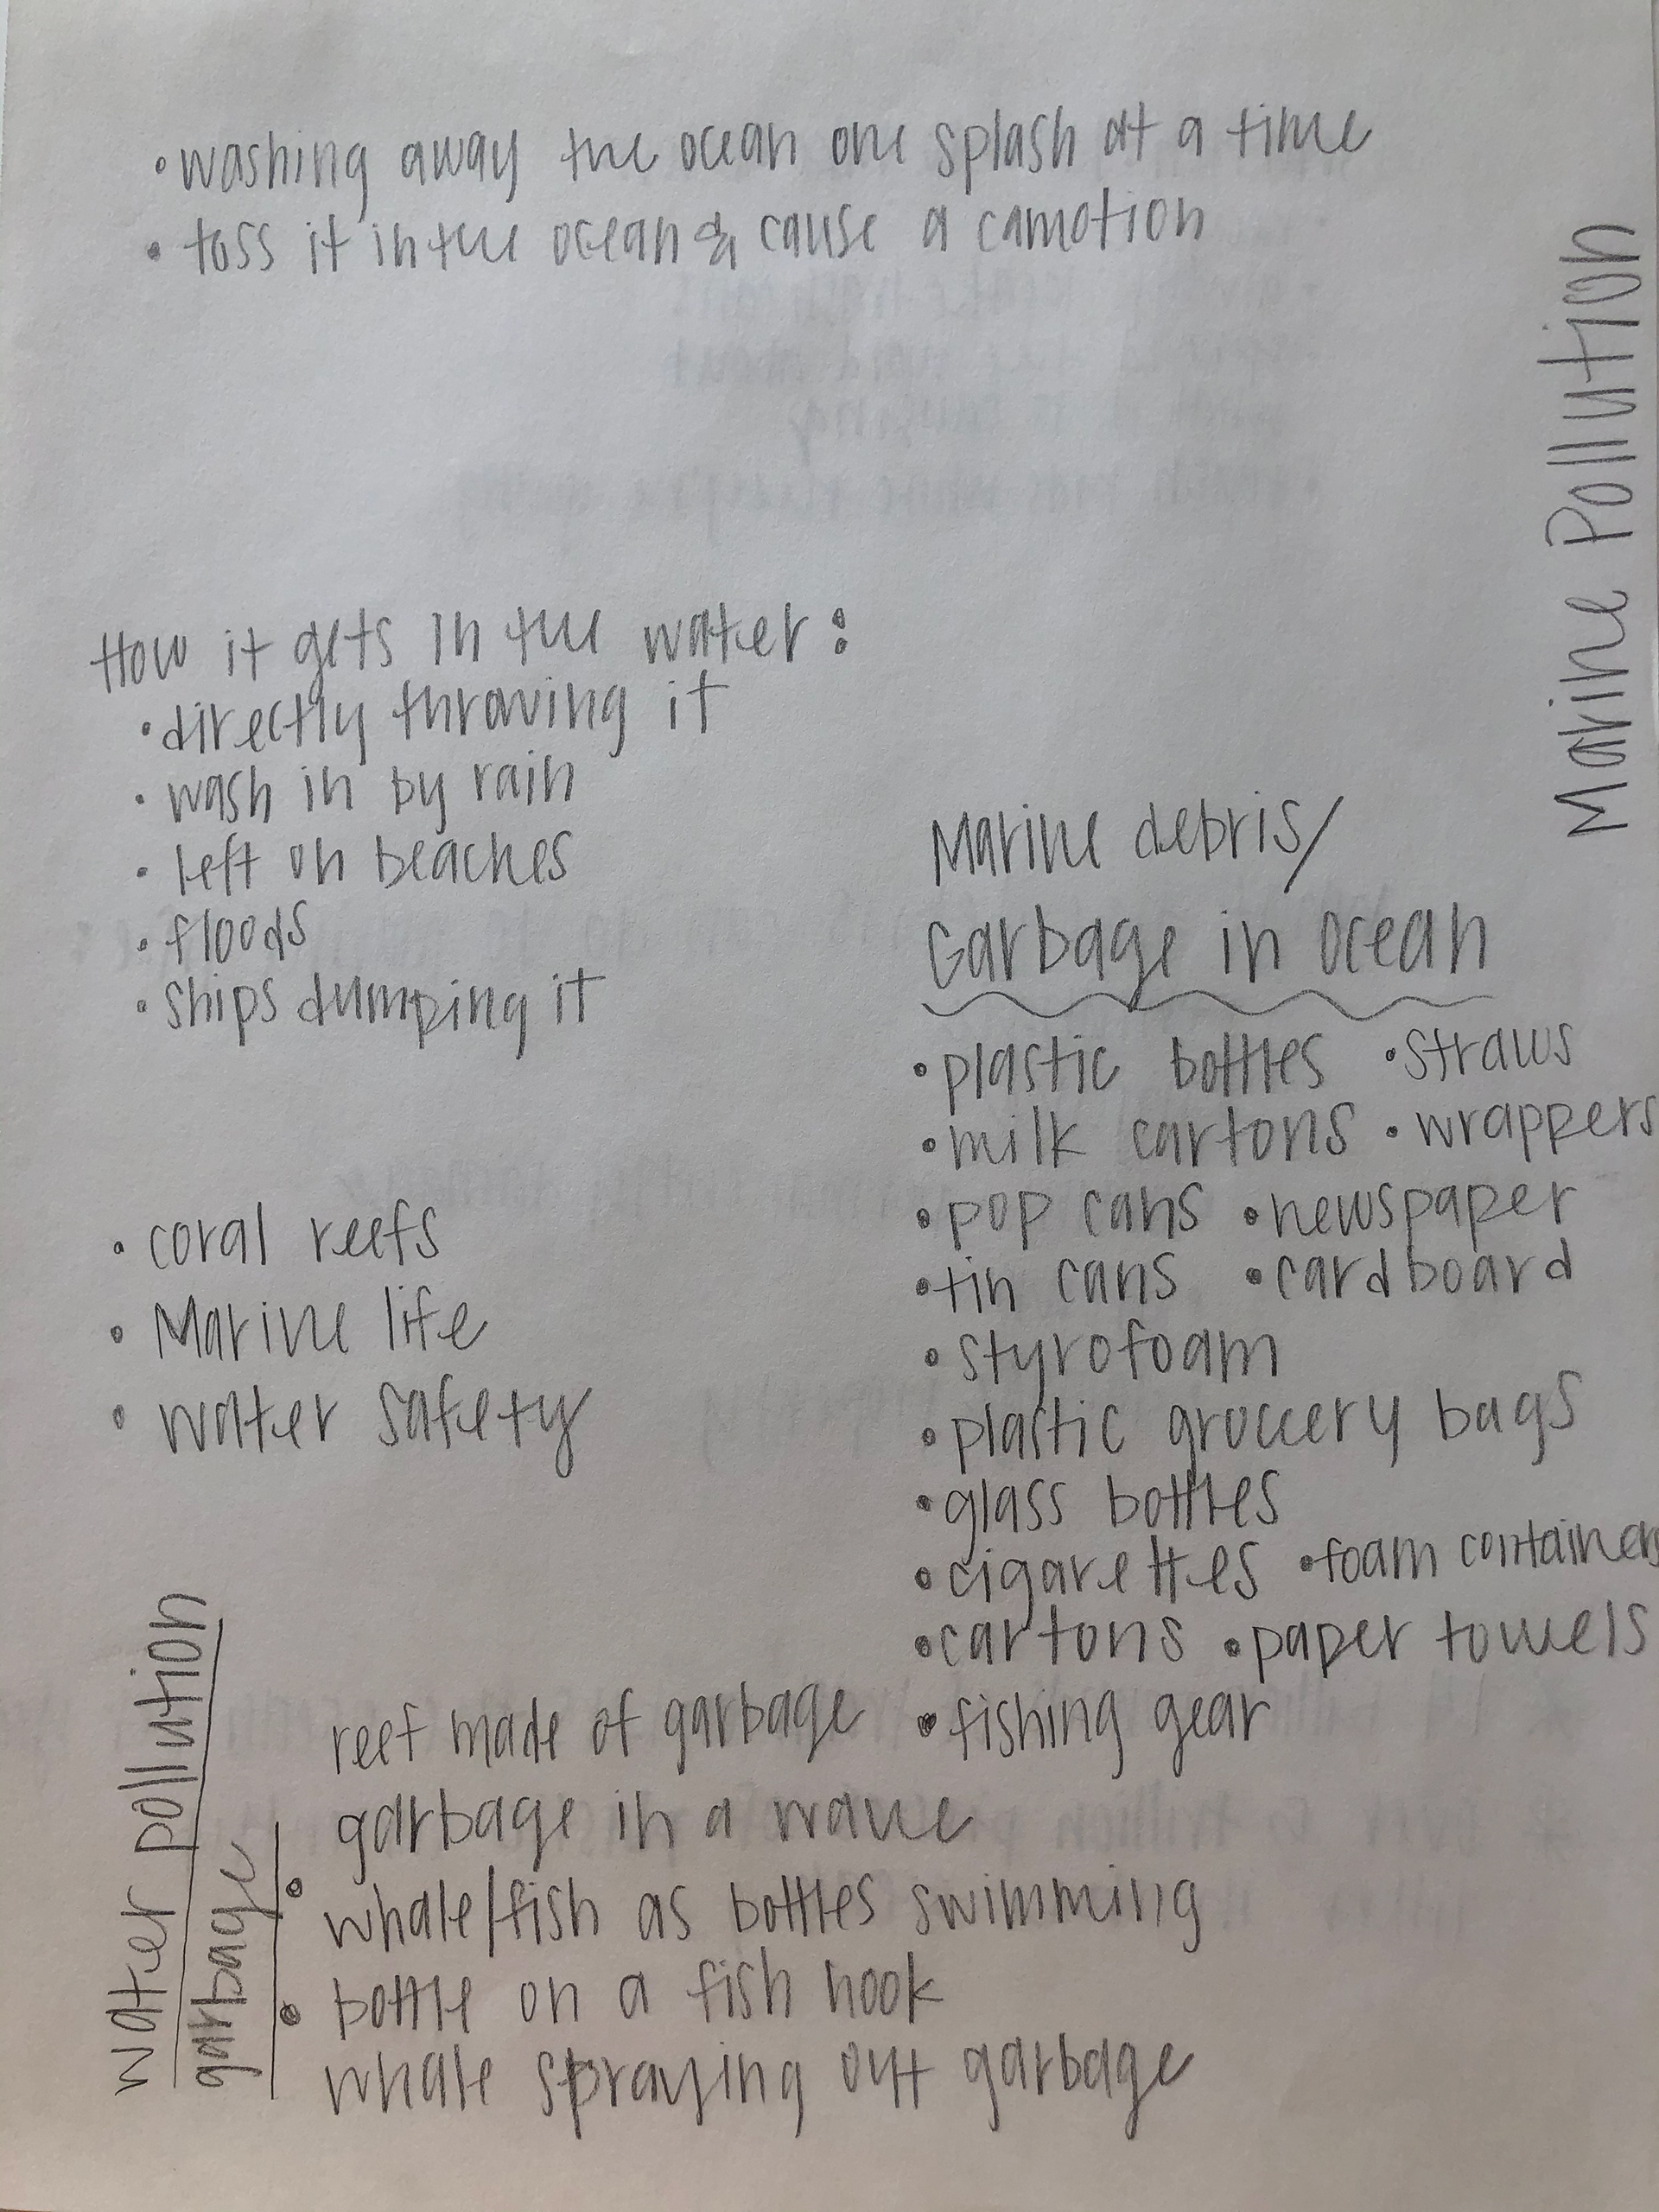 • washing away the ocean one splash at a time
• toss it in the ocean & cause a camotion
Marine Pollution
How it gets in the water:
• directly throwing it
• wash in by rain
• left on beaches
• floods
• ships dumping it
• coral reefs
• Marine life
• water safety
Marine debris/
Garbage in ocean
• plastic bottles • straws
• milk cartons • wrappers
• pop cans • newspaper
• tin cans • cardboard
• styrofoam
• plastic groccery bags
• glass bottles
• cigarettes • foam containers
• cartons • paper towels
• fishing gear
water pollution
garbage
reef made of garbage
garbage in a wave
• whale/fish as bottles swimming
• bottle on a fish hook
whale spraying out garbage